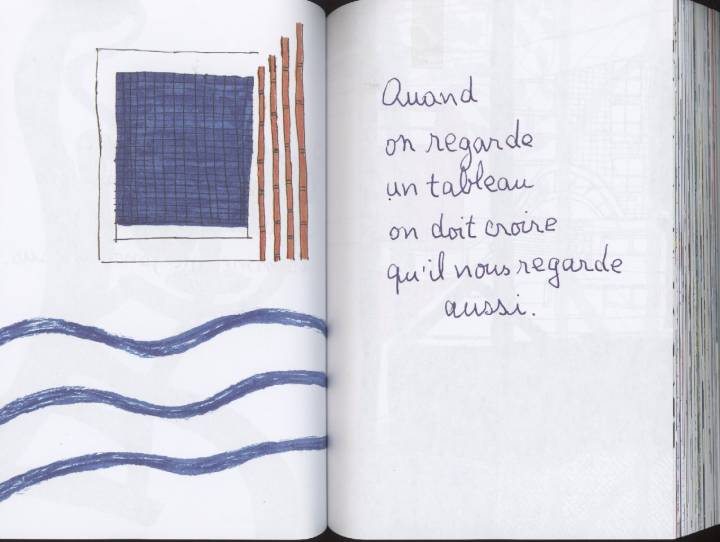 Quand
on regarde
un tableau
on doit croire
qu'il nous regarde
aussi.